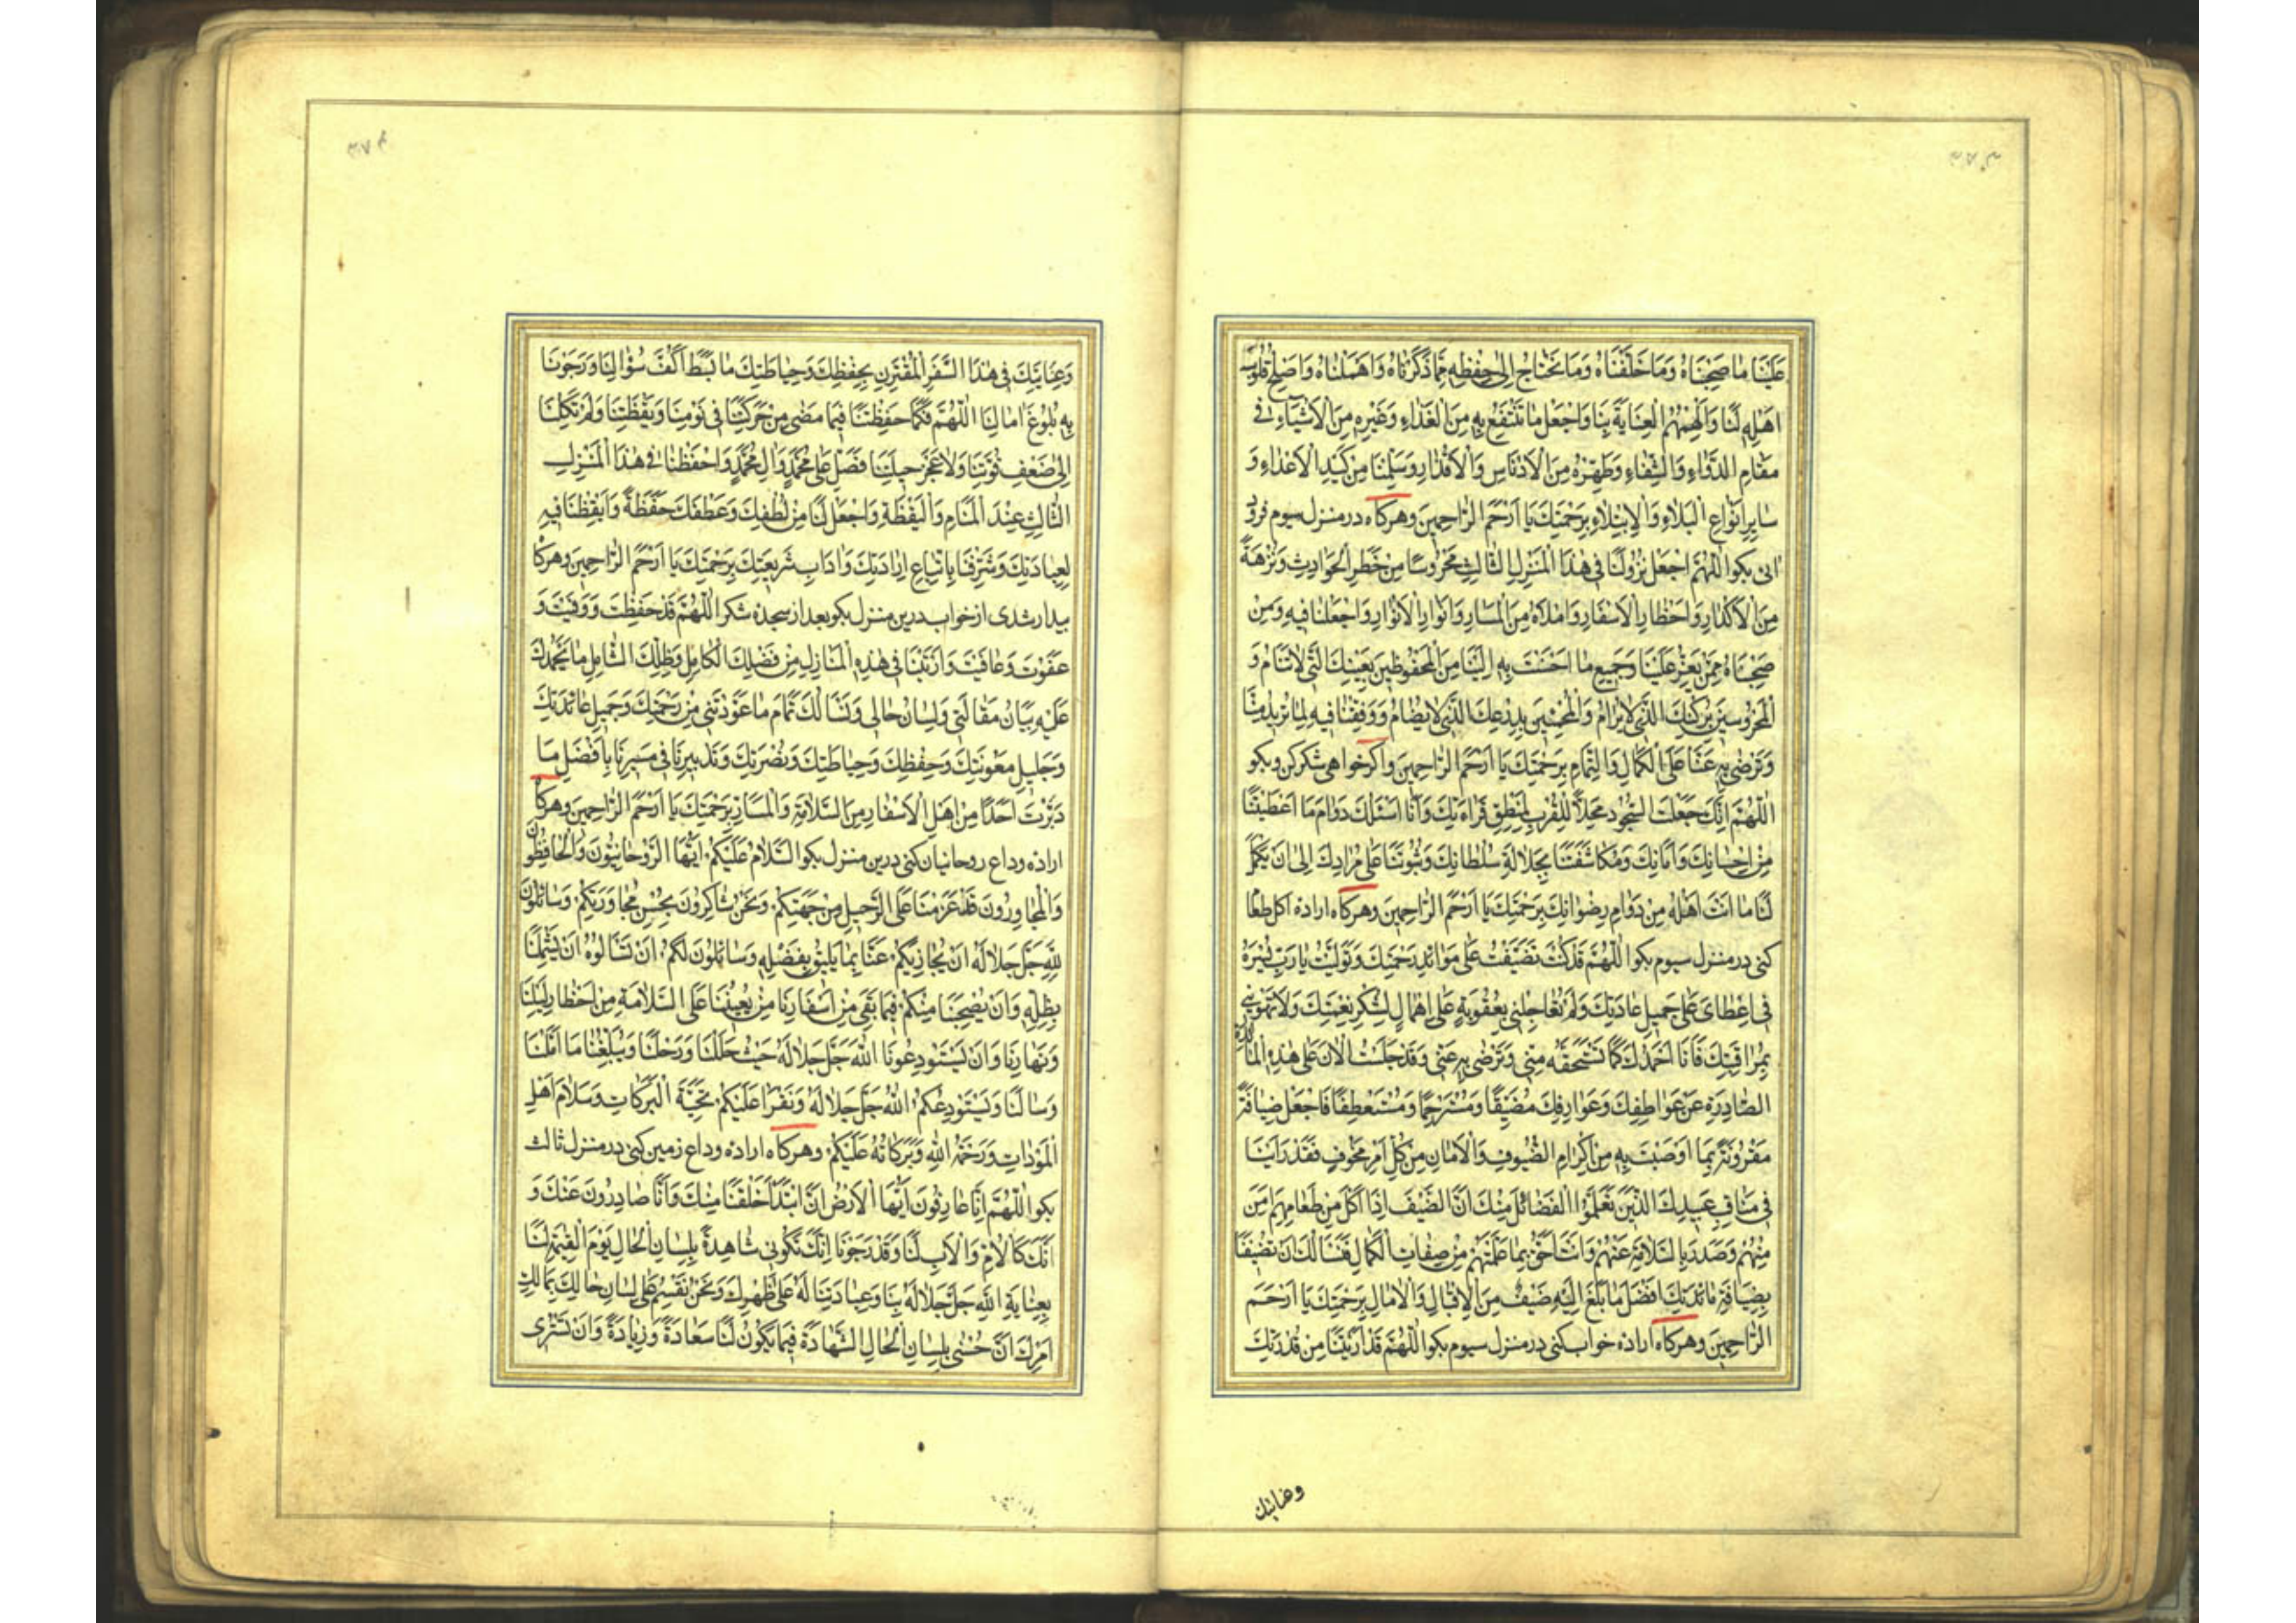 عَلَيْنَا مَا صَحِبْنَاهُ وَمَا خَلَّفْنَاهُ وَمَا نَحْتَاجُ إِلَى حِفْظِهِ مِمَّا ذَكَرْنَاهُ وَاَهْمَلْنَاهُ وَاَصْلِحْ قُلُوبَ
اَهْلِهِ لَنَا وَاَلْهِمْهُمُ الْعِنَايَةَ بِنَا وَاجْعَلْ مَا نَنْتَفِعُ بِهِ مِنَ الْغَذَاءِ وَغَيْرِهِ مِنَ الْاَشْيَاءِ فِى
مَقَامِ الدَّوَاءِ وَالشِّفَاءِ وَطَهِّرْهُ مِنَ الْاَدْنَاسِ وَالْاَقْذَارِ وَسَلِّمْنَا مِنْ كَيْدِ الْاَعْدَاءِ وَ
سَايِرِ اَنْوَاعِ الْبَلَاءِ وَالْاِبْتِلَاءِ بِرَحْمَتِكَ يَا اَرْحَمَ الرَّاحِمِينَ وهركاه در منزل سيوم فرود
آئى بكو اَللّٰهُمَّ اجْعَلْ نُزُولَنَا فِى هٰذَا الْمَنْزِلِ الثَّالِثِ مَحْرُوسًا مِنْ خَطَرِ الْحَوَادِثِ وَنُزْهَةً
مِنَ الْاَكْدَارِ وَاَخْطَارِ الْاَسْفَارِ وَامْلَاْهُ مِنَ الْمَسَارِّ وَاَنْوَارِ الْاَنْوَارِ وَاجْعَلْنَا فِيهِ وَمَنْ
صَحِبْنَاهُ مِمَّنْ يَعِزُّ عَلَيْنَا وَجَمِيعِ مَا اَحْسَنْتَ بِهِ اِلَيْنَا مِنَ الْمَحْفُوظِينَ بِعَيْنِكَ الَّتِى لَا تَنَامُ وَ
الْمَحْرُوسِينَ بِرُكْنِكَ الَّذِى لَا يُرَامُ وَالْمَحْمِيِّينَ بِدِرْعِكَ الَّذِى لَا يُضَامُ وَوَفِّقْنَا فِيهِ لِمَا تُرِيدُ مِنَّا
وَتَرْضٰى بِهِ عَنَّا عَلَى الْكَمَالِ وَالتَّمَامِ بِرَحْمَتِكَ يَا اَرْحَمَ الرَّاحِمِينَ واكر خواهى شكر كن وبكو
اَللّٰهُمَّ اِنَّكَ جَعَلْتَ السُّجُودَ مَحَلًّا لِلْقُرْبِ لِمَنْطِقِ قِرَاءَتِكَ وَاَنَا اَسْئَلُكَ دَوَامَ مَا اَعْطَيْتَنَا
مِنْ اِحْسَانِكَ وَاَمَانِكَ وَمُكَاشَفَتَنَا بِجَلَالَةِ سُلْطَانِكَ وَثُبُوتَنَا عَلَى مُرَادِكَ اِلٰى اَنْ يَكْمُلَ
لَنَا مَا اَنْتَ اَهْلُهُ مِنْ دَوَامِ رِضْوَانِكَ بِرَحْمَتِكَ يَا اَرْحَمَ الرَّاحِمِينَ وهركاه اراده اكل طعام
كنى در منزل سيوم بكو اَللّٰهُمَّ قَدْ كُنْتُ تَضَيَّفْتُ عَلَى مَوَائِدِ رَحْمَتِكَ وَتَوَلَّيْتَ يَا رَبِّ
فِى اِعْطَاىَ عَلَى جَمِيلِ عَادَتِكَ وَلَمْ تُعَاجِلْنِى بِعُقُوبَةٍ عَلَى اِهْمَالٍ لِشُكْرِ نِعْمَتِكَ وَلَا
بِمُرَاقَبَتِكَ فَاَنَا اَحْمَدُكَ كَمَا تَسْتَحِقُّهُ مِنِّى وَتَرْضٰى بِهِ عَنِّى وَقَدْ جَلَسْتُ الْاٰنَ عَلَى هٰذِهِ الْمَائِدَةِ
الصَّادِرَةِ عَنْ عَوَاطِفِكَ وَعَوَارِفِكَ مُضَيَّفًا وَمُسْتَرْحِمًا وَمُسْتَعْطِفًا فَاجْعَلْ ضِيَافَةً
مَقْرُونَةً بِمَا اَوْصَيْتَ بِهِ مِنْ اِكْرَامِ الضُّيُوفِ وَالْاَمَانِ مِنْ كُلِّ اَمْرٍ مَخُوفٍ فَقَدْ رَاَيْنَا
فِى مَنَاقِبِ عَبِيدِكَ الَّذِينَ تَعَلَّمُوا الْفَضَائِلَ مِنْكَ اَنَّ الضَّيْفَ اِذَا اَكَلَ مِنْ طَعَامِهِمْ اَمِنَ
مِنْهُمْ وَصَدَرَ بِالسَّلَامَةِ عَنْهُمْ وَاَنْتَ اَحَقُّ بِمَا عَلَّمْتَهُمْ مِنْ صِفَاتِ الْكَمَالِ فَنَسْاَلُكَ اَنْ تُضَيِّفَنَا
بِضِيَافَةِ مَائِدَتِكَ اَفْضَلَ مَا بَلَغَ اِلَيْهِ ضَيْفٌ مِنَ الْاِقْبَالِ وَالْاٰمَالِ بِرَحْمَتِكَ يَا اَرْحَمَ
الرَّاحِمِينَ وهركاه اراده خواب كنى در منزل سيوم بكو اَللّٰهُمَّ قَدْ اَرَيْتَنَا مِنْ قُدْرَتِكَ
وعنايتك
وَعِنَايَتِكَ فِى هٰذَا السَّفَرِ الْمُقْتَرِنِ بِحِفْظِكَ وَحِيَاطَتِكَ مَا بَسَطَ اَكُفَّ سُؤَالِنَا وَرَجَوْنَا
بِهِ بُلُوغَ اٰمَالِنَا اَللّٰهُمَّ فَكَمَا حَفِظْتَنَا فِيمَا مَضٰى مِنْ حَرَكَتِنَا فِى نَوْمِنَا وَيَقْظَتِنَا وَلَمْ تَكِلْنَا
اِلٰى ضَعْفِ قُوَّتِنَا وَلَا عَجْزِ حِيلَتِنَا فَصَلِّ عَلَى مُحَمَّدٍ وَاٰلِ مُحَمَّدٍ وَاحْفَظْنَا فِى هٰذَا الْمَنْزِلِ
الثَّالِثِ عِنْدَ الْمَنَامِ وَالْيَقْظَةِ وَاجْعَلْ لَنَا مِنْ لُطْفِكَ وَعَطْفِكَ حَفَظَةً وَاَيْقِظْنَا فِيهِ
لِعِبَادَتِكَ وَشَرِّفْنَا بِاتِّبَاعِ اِرَادَتِكَ وَاٰدَابِ شَرِيعَتِكَ بِرَحْمَتِكَ يَا اَرْحَمَ الرَّاحِمِينَ وهركاه
بيدار شدى از خواب درين منزل بكو بعد از سجده شكر اَللّٰهُمَّ قَدْ حَفِظْتَ وَوَقَيْتَ وَ
عَفَوْتَ وَعَافَيْتَ وَاَرَيْتَنَا فِى هٰذِهِ الْمَنَازِلِ مِنْ فَضْلِكَ الْكَامِلِ وَظِلِّكَ الشَّامِلِ مَا نَحْمَدُكَ
عَلَيْهِ بِبَيَانِ مَقَالَتِى وَلِسَانِ حَالِى وَنَسْاَلُكَ تَمَامَ مَا عَوَّدْتَنِى مِنْ رَحْمَتِكَ وَجَمِيلِ عَائِدَتِكَ
وَجَلِيلِ مَعُونَتِكَ وَحِفْظِكَ وَحِيَاطَتِكَ وَنُصْرَتِكَ وَتَدْبِيرِنَا فِى مَسِيرِنَا بِاَفْضَلِ مَا
دَبَّرْتَ اَحَدًا مِنْ اَهْلِ الْاَسْفَارِ مِنَ السَّلَامَةِ وَالْمَسَارِّ بِرَحْمَتِكَ يَا اَرْحَمَ الرَّاحِمِينَ وهركاه
اراده وداع روحانيان كنى درين منزل بكو اَلسَّلَامُ عَلَيْكُمْ اَيُّهَا الرَّوْحَانِيُّونَ وَالْحَافِظُونَ
وَالْمُجَاوِرُونَ قَدْ عَزَمْنَا عَلَى الرَّحِيلِ مِنْ جَهَتِكُمْ وَنَحْنُ شَاكِرُونَ بِحُسْنِ مُجَاوَرَتِكُمْ وَسَائِلُونَ
لِلّٰهِ جَلَّ جَلَالُهُ اَنْ يُجَازِيَكُمْ عَنَّا بِمَا يَلِيقُ بِفَضْلِهِ وَسَائِلُونَ لَكُمْ اَنْ تَسْاَلُوهُ اَنْ يَشْمَلَنَا
بِظِلِّهِ وَاَنْ يُصْحِبَنَا مِنْكُمْ فِيمَا بَقِىَ مِنْ اَسْفَارِنَا مَنْ يُعِينُنَا عَلَى السَّلَامَةِ مِنْ اَخْطَارِ لَيْلِنَا
وَنَهَارِنَا وَاَنْ تَسْتَوْدِعُونَا اللّٰهَ جَلَّ جَلَالُهُ حَيْثُ حَلَلْنَا وَرَحَلْنَا وَيُبَلِّغَنَا مَا اَمَّلْنَا
وَسَاَلْنَا وَنَسْتَوْدِعُكُمُ اللّٰهَ جَلَّ جَلَالُهُ وَنَقْرَاُ عَلَيْكُمْ تَحِيَّةَ الْبَرَكَاتِ وَسَلَامَ اَهْلِ
الْمَوَدَّاتِ وَرَحْمَةُ اللّٰهِ وَبَرَكَاتُهُ عَلَيْكُمْ وهركاه اراده وداع زمين كنى در منزل ثالث
بكو اَللّٰهُمَّ اِنَّا عَارِفُونَ اَيَّتُهَا الْاَرْضُ اَنَّ ابْتِدَاءَ خَلْقِنَا مِنْكِ وَاَنَّا صَادِرُونَ عَنْكِ وَ
اَنَّكِ كَالْاُمِّ وَالْاَبِ لَنَا وَقَدْ رَجَوْنَا اَنَّكِ تَكُونِى شَاهِدَةً بِلِسَانِ الْحَالِ يَوْمَ الْقِيٰمَةِ لَنَا
بِعِنَايَةِ اللّٰهِ جَلَّ جَلَالُهُ بِنَا وَعِبَادَتِنَا لَهُ عَلَى ظَهْرِكِ وَنَحْنُ نُقْسِمُ عَلَى لِسَانِ حَالِكِ بِمَالِكِ
اَمْرِكِ اَنْ تُحْسِنِى بِلِسَانِ الْحَالِ الشَّهَادَةَ فِيمَا يَكُونُ لَنَا سَعَادَةً وَزِيَادَةً وَاَنْ تَسْتُرِى